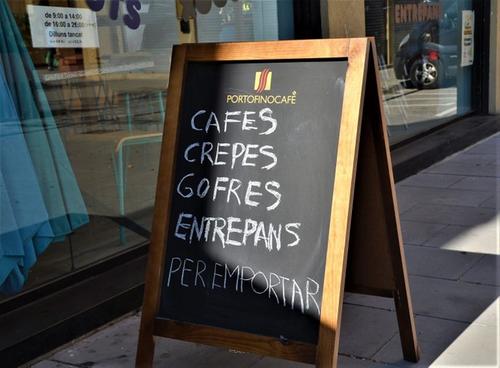 de 9:00 a 14:00
de 16:00 a
Dilluns tancat
ENTREPANS
PORTOFINOCAFÈ
CAFES
CREPES
GOFRES
ENTREPANS
PER EMPORTAR